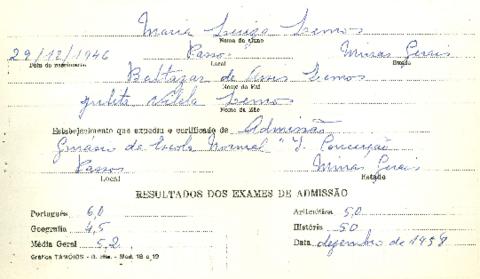 Maria Luiza Lemos
Nome do Aluno
29/12/1946 Passos Minas Gerais
Data de nascimento Local Estado
Baltazar de Assis Lemos
Nome do Pai
Vilela Lemos
Nome da Mãe
Estabelecimento que expediu o certificado de Admissão
Ginásio da Escola Normal "I. Conceição"
Passos Minas Gerais
Local Estado
RESULTADOS DOS EXAMES DE ADMISSÃO
Português 6,0 Aritmética 5,0
Geografia 4,5 História 50
Média Geral 5,2 Data dezembro de 1958
Mod. 18 a 19